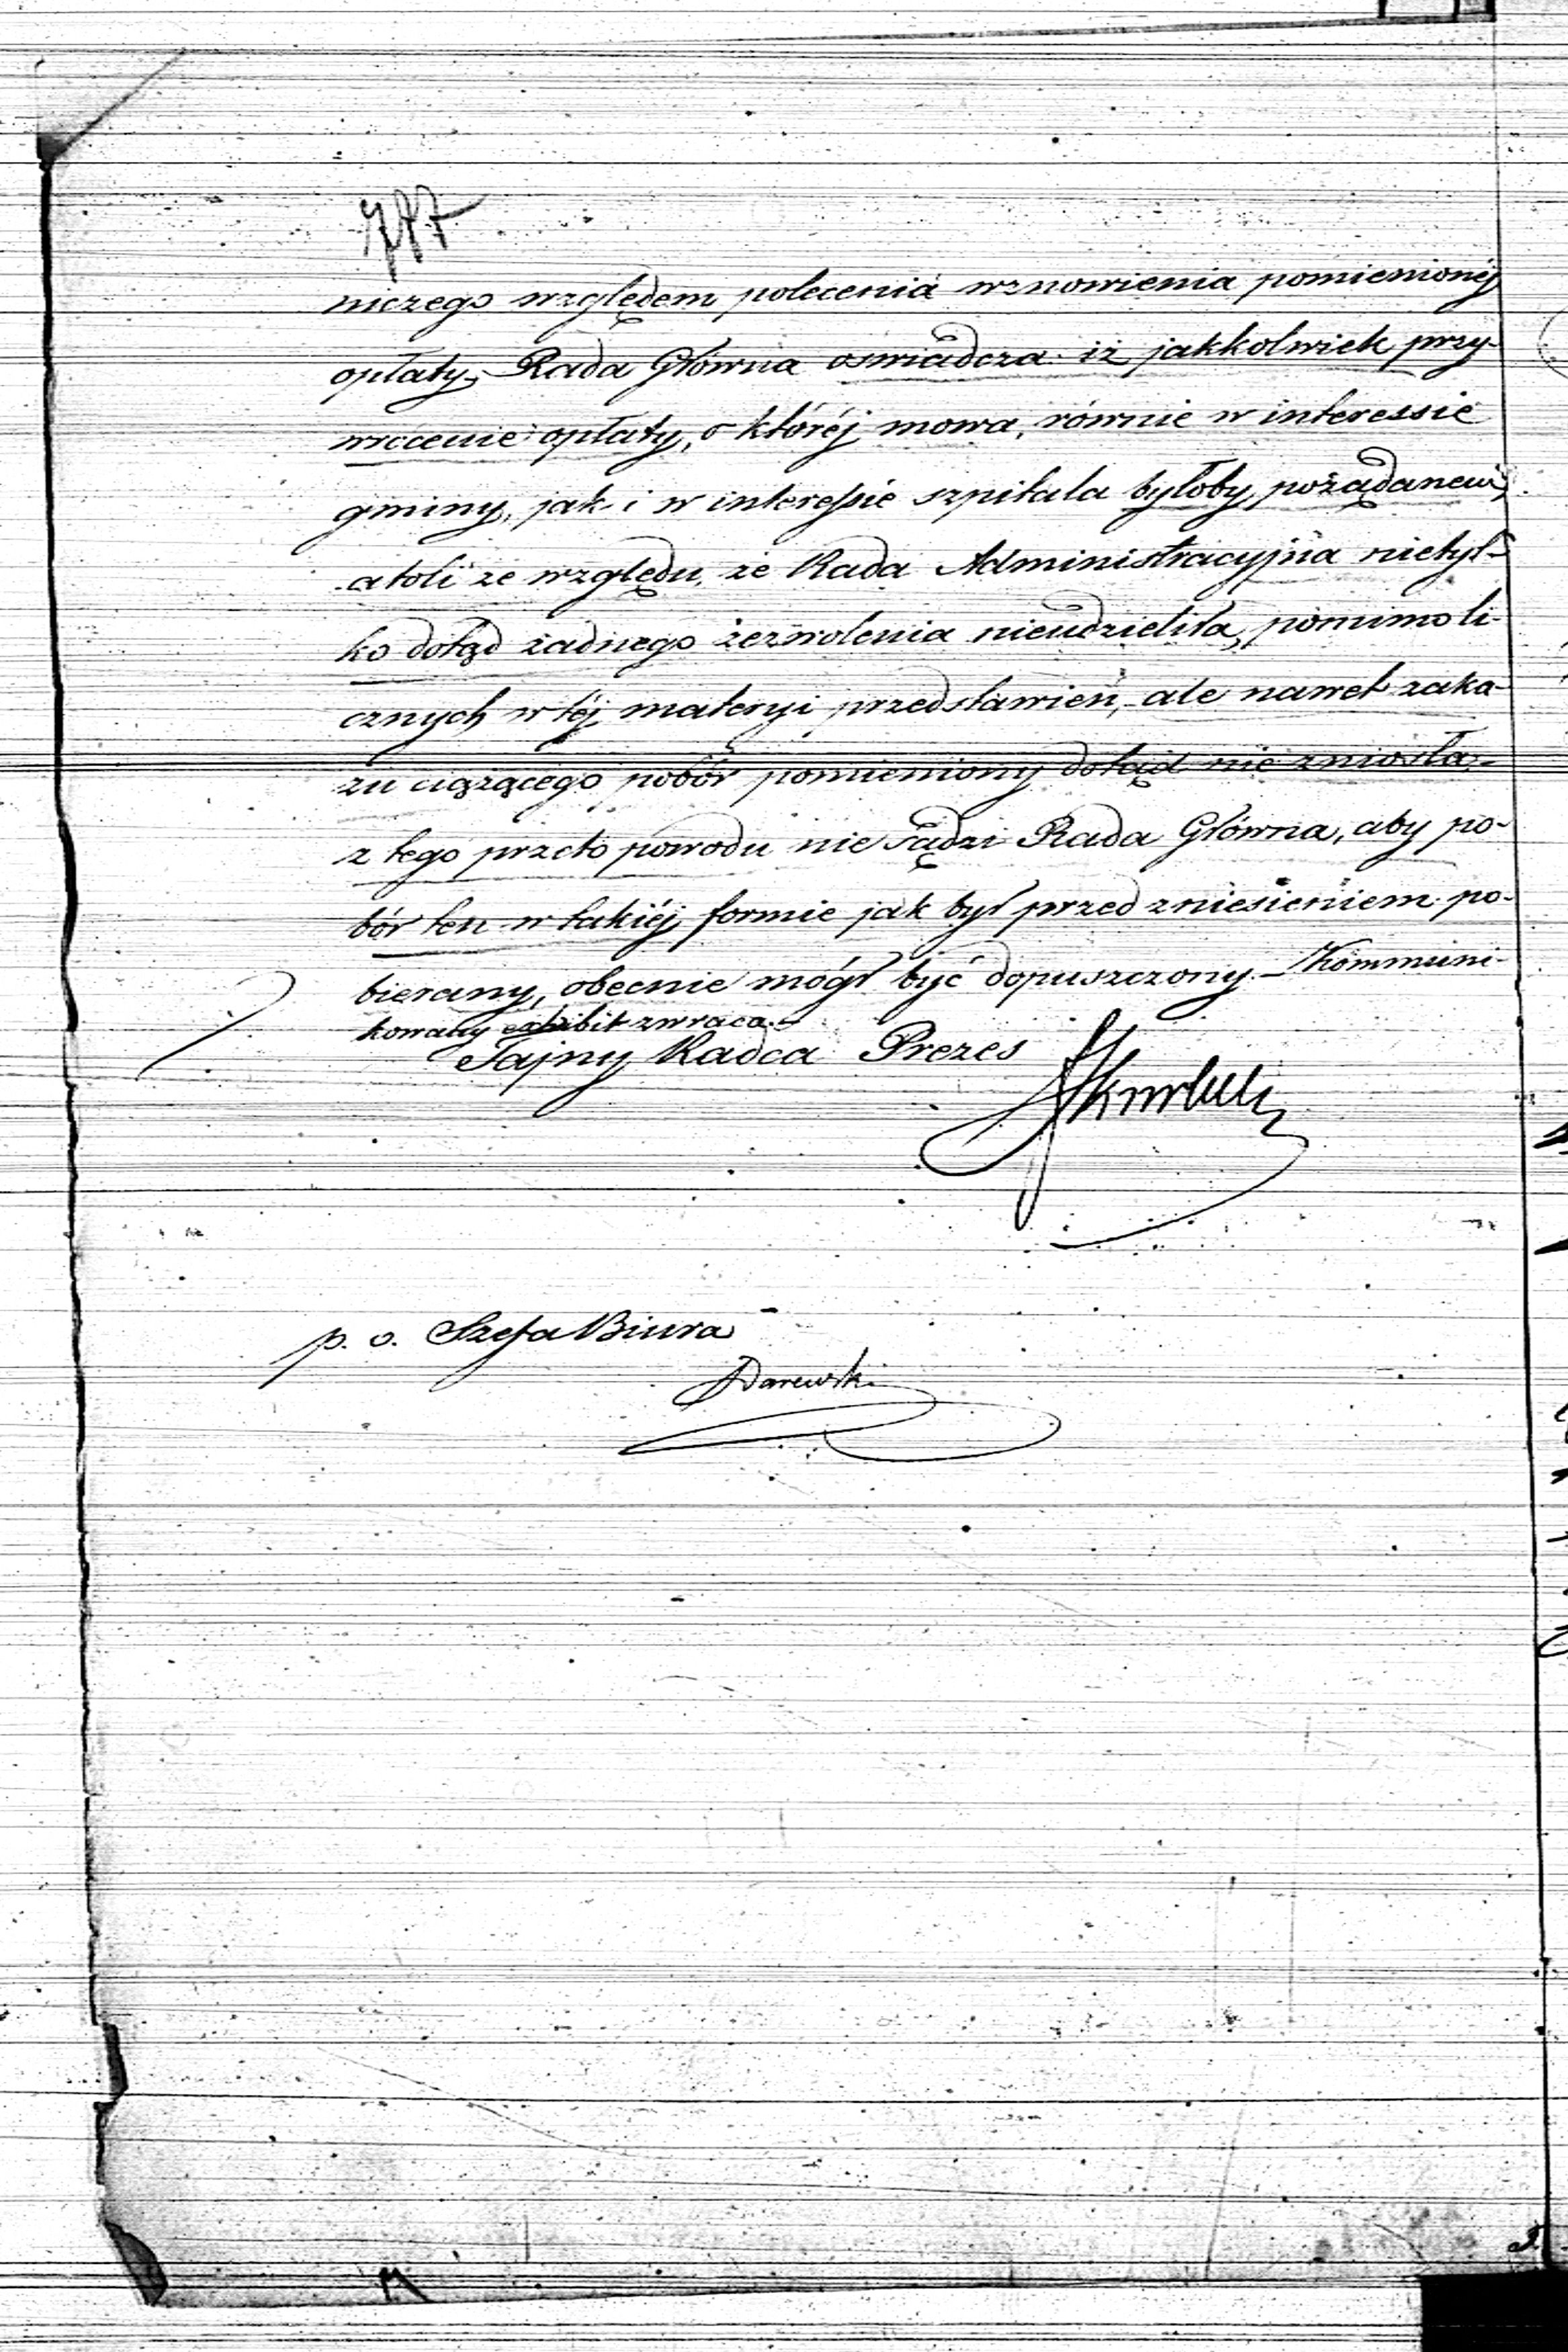 787
niczego względem polecenia wznowienia pomienionéj
opłaty, Rada Główna oswiadcza iż jakkolwiek przy-
wrócenie opłaty, o któréj mowa, równie w interessie
gminy, jak i w interessie szpitala byłoby pożądanem,
atoli ze względu, że Rada Administracyjna nietyl-
ko dotąd żadnego zezwolenia nieudzieliła, pomimo li-
cznych w téj materyi przedstawień, ale nawet zaka-
zu ciążącego pobór pomieniony dotąd nie zniosła,
z tego przeto powodu nie sądzi Rada Główna, aby po-
bór ten w takiéj formie jak był przed zniesieniem po-
bierany, obecnie mógł być dopuszczony. – Kommuni-
kowany exhibit zwraca. –
Tajny Radca Prezes
p. o. Szefa Biura
Darewski